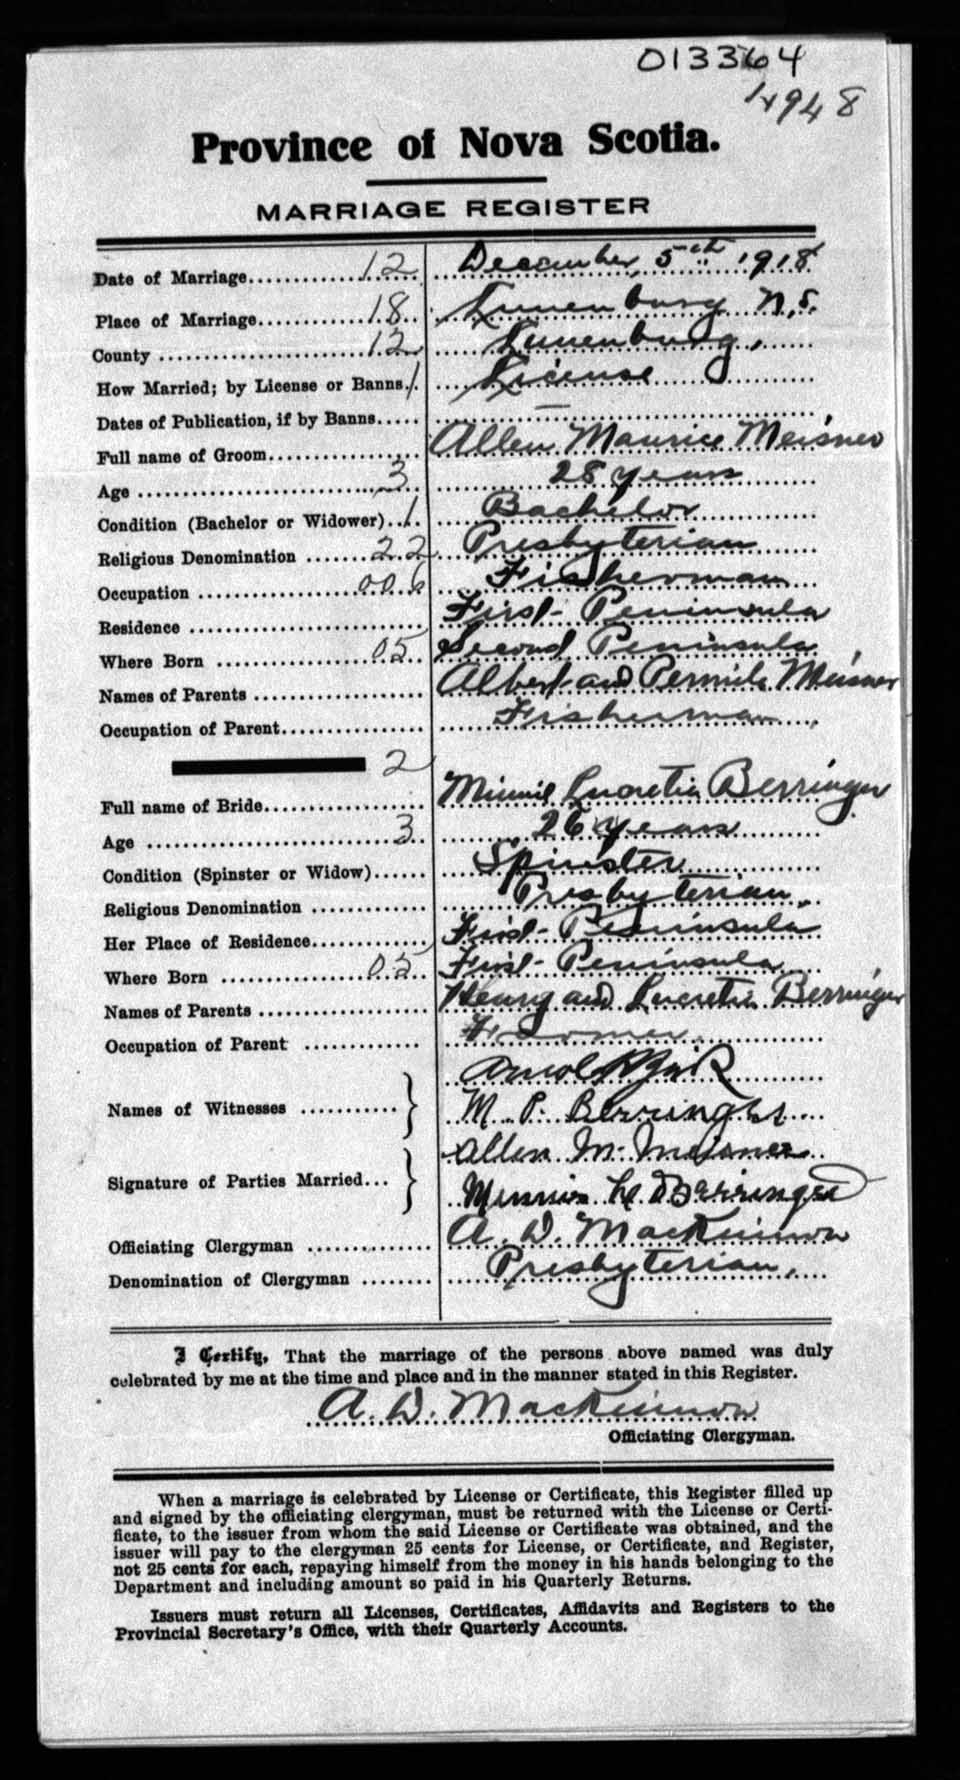 013364
4948
Province of Nova Scotia.
MARRIAGE REGISTER
Date of Marriage 12 December, 5th 1918
Place of Marriage 18 Lunenburg N.S.
County 12 Lunenburg,
How Married; by License or Banns. 1 License
Dates of Publication, if by Banns —
Full name of Groom Allen Maurice Meisner
Age 3 28 years
Condition (Bachelor or Widower) 1 Bachelor
Religious Denomination 22 Presbyterian
Occupation 006 Fisherman
Residence First Peninsula
Where Born 05 Second Peninsula
Names of Parents Albert and Meisner
Occupation of Parent Fisherman
2
Full name of Bride Minnie Lucretia Berringer
Age 3 26 years
Condition (Spinster or Widow) Spinster
Religious Denomination Presbyterian,
Her Place of Residence First Peninsula
Where Born 05 First Peninsula
Names of Parents Henry and Lucretia Berringer
Occupation of Parent Farmer
Arnold
Names of Witnesses
M. P. Berringer
Allen M. Meisner
Signature of Parties Married
Minnie L. Berringer
Officiating Clergyman A. D. MacKinnon
Denomination of Clergyman Presbyterian,
I Certify, That the marriage of the persons above named was duly
celebrated by me at the time and place and in the manner stated in this Register.
A. D. MacKinnon
Officiating Clergyman.
When a marriage is celebrated by License or Certificate, this Register filled up
and signed by the officiating clergyman, must be returned with the License or Certi-
ficate, to the issuer from whom the said License or Certificate was obtained, and the
issuer will pay to the clergyman 25 cents for License, or Certificate, and Register,
not 25 cents for each, repaying himself from the money in his hands belonging to the
Department and including amount so paid in his Quarterly Returns.
Issuers must return all Licenses, Certificates, Affidavits and Registers to the
Provincial Secretary's Office, with their Quarterly Accounts.